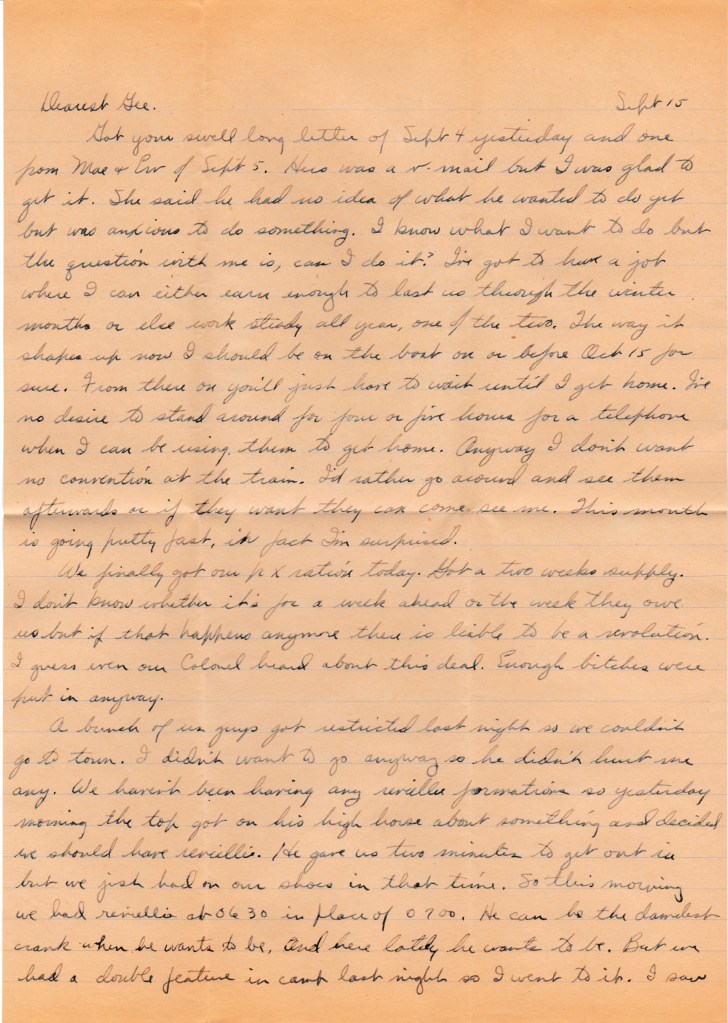 Dearest Gee. Sept 15
Got your swell long letter of Sept 4 yesterday and one
from Mae & Erv of Sept 5. Hers was a v-mail but I was glad to
get it. She said he had no idea of what he wanted to do yet
but was anxious to do something. I know what I want to do but
the question with me is, can I do it? I've got to have a job
where I can either earn enough to last us through the winter
months or else work steady all year, one of the two. The way it
shapes up now I should be on the boat on or before Oct 15 for
sure. From there on you'll just have to wait until I get home. I've
no desire to stand around for four or five hours for a telephone
when I can be using them to get home. Anyway I don't want
no convention at the train. I'd rather go around and see them
afterwards or if they want they can come see me. This month
is going putty fast, in fact I'm surprised.
We finally got our p x ration today. Got a two weeks supply.
I don't know whether it's for a week ahead or the week they owe
us but if that happens anymore there is liable to be a revolution.
I guess even our Colonel heard about this deal. Enough bitches were
put in anyway.
A bunch of us guys got restricted last night so we couldn't
go to town. I didn't want to go anyway so he didn't hurt me
any. We haven't been having any reveille formations so yesterday
morning the top got on his high horse about something and decided
we should have reveillie. He gave us two minutes to get out in
but we just had on our shoes in that time. So this morning
we had reveillie at 0630 in place of 0700. He can be the darndest
crank when he wants to be, and here lately he wants to be. But we
had a double feature in camp last night so I went to it. I saw